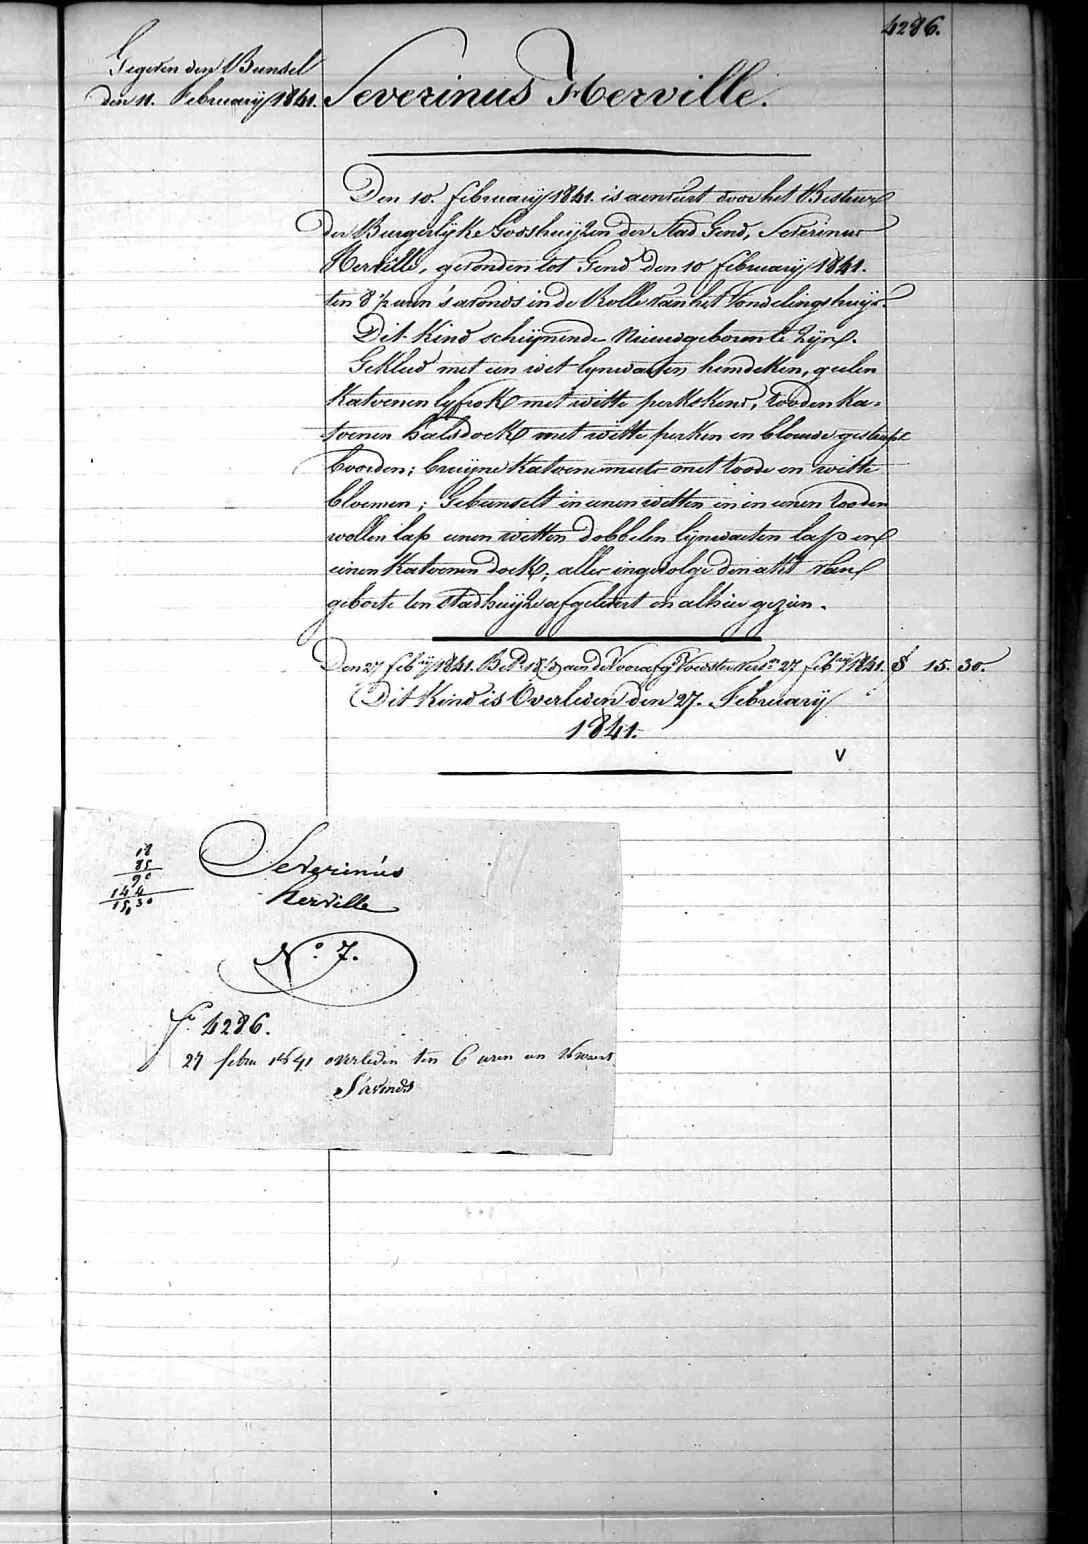 4286.
Gegeven den Bundel
den 11. February 1841.
Severinus Herville.
Den 10. february 1841. is aenveirt door het Bestuer
der Burgerlyke Godshuijzen der stad Gend, Severinus
Herville, gevonden tot Gend den 10 february 1841.
ten 8 ½ uren 's avonds in de Rolle van het Vondelingshuys.
Dit Kind schynende Nieuwgeboren te Zyn.
Gekleed met een wit lynwaeten hemdeken, geelen
Katoenen lyfrok met witte perkskens, rooden Ka=
toenen halsdoek met witte perken en blauwe gestreepte
boorden; bruyne Katoene muts met roode en witte
bloemen; Gebunselt in eenen witten en in eenen rooden
wollen lap eenen witten dobbelen lynwaeten lap en
eenen Katoenen doek, alles ingevolge den akt van
geborte ten stadhuijze afgelevert en alhier gezien.
Den 27 feb.ry 1841. Bet.d aen de Voorsz. Voedster vers.n 27 feb.ry 1841. 15. 30.
Dit Kind is Overleden den 27. February
1841.
V
18
85
90
144
15,30
Severinus
herville
N.o 7.
f.o 4286.
27 febru 1841 overleden ten 6 uren en Kwaert
S'avonds